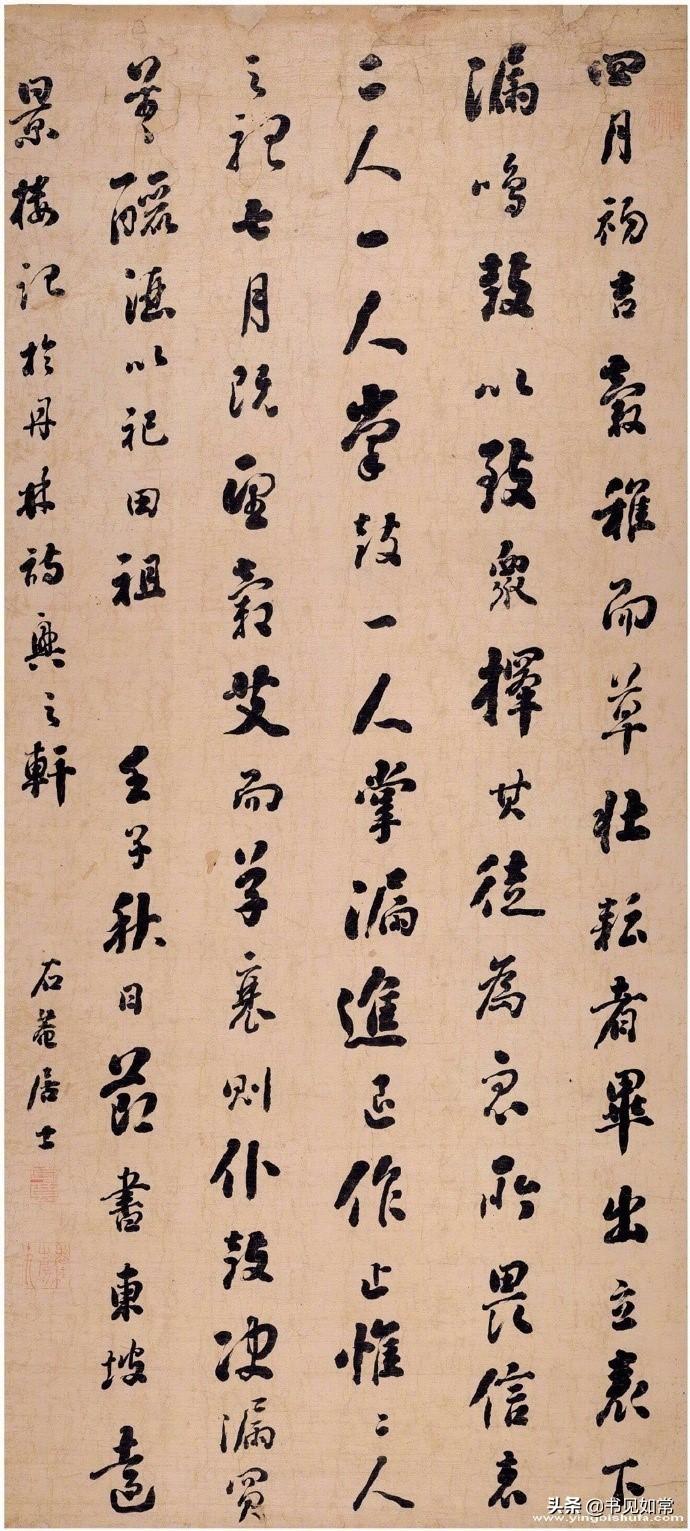 四月初吉穀稚而草壯耘者畢出立表下
漏鳴鼓以致衆擇其徒為衆所畏信者
二人一人掌鼓一人掌漏進退作止惟二人
之聽七月既望穀艾而草衰則仆鼓決漏買
羊釃酒以祀田祖 壬子秋日節書東坡遠
景樓記於丹林詩興之軒 石菴居士
头条 @书见如常
www.yingbishufa.com